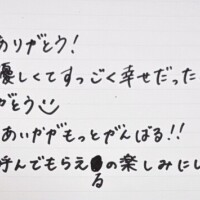 ありがとう!
優しくてすっごく幸せだった
がとう
あいかがもっとがんばる!!
呼んでもらえるの楽しみにし